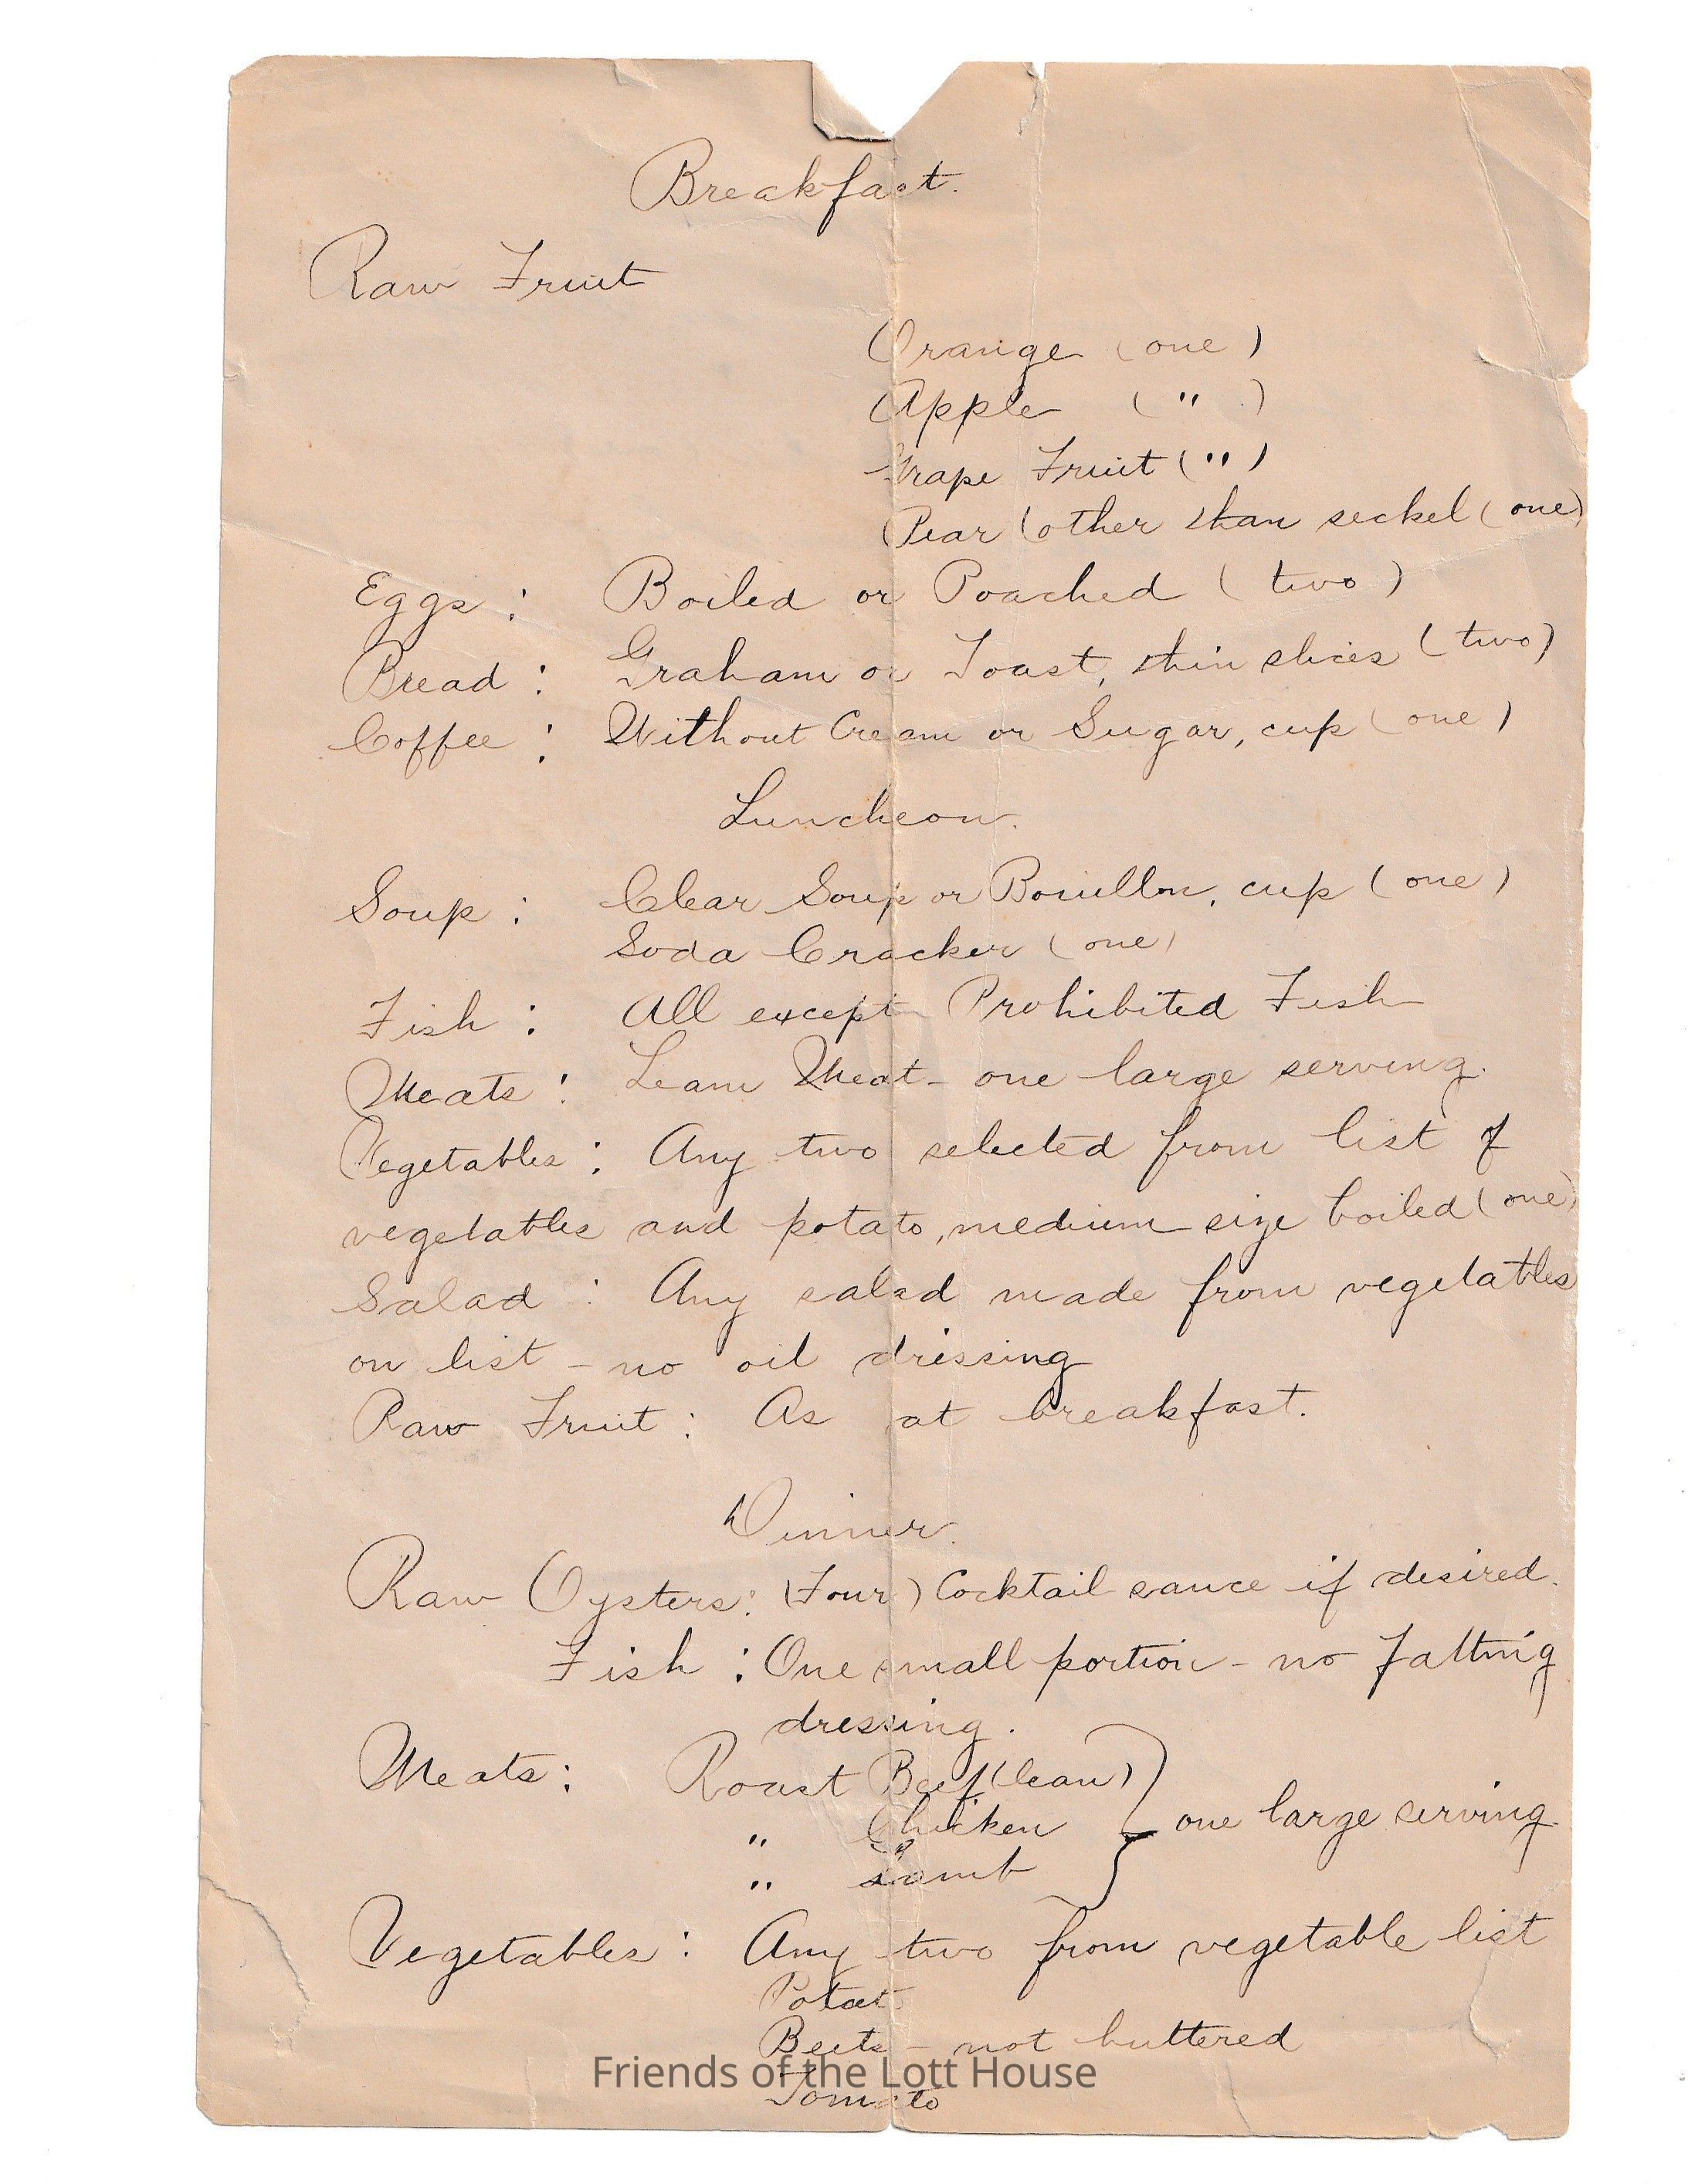 Breakfast.
Raw Fruit
Orange (one)
Apple ( " )
Grape Fruit ( " )
Pear (other than seckel (one)
Eggs : Boiled or Poached (two)
Bread : Graham or Toast, thin slices (two)
Coffee : Without Cream or Sugar, cup (one)
Luncheon.
Soup : Clear Soup or Bouillon, cup (one)
Soda Cracker (one)
Fish : All except Prohibited Fish
Meats : Lean Meat - one large serving.
Vegetables : Any two selected from list of
vegetables and potato, medium size boiled (one)
Salad : Any salad made from vegetables
on list - no oil dressing
Raw Fruit : As at breakfast.
Dinner.
Raw Oysters : (Four) Cocktail sauce if desired.
Fish : One small portion - no fatting
dressing.
Meats : Roast Beef (lean)
" Chicken } one large serving
" Lamb
Vegetables : Any two from vegetable list
Potat
Beets - not buttered
Friends of the Lott House
Tomato